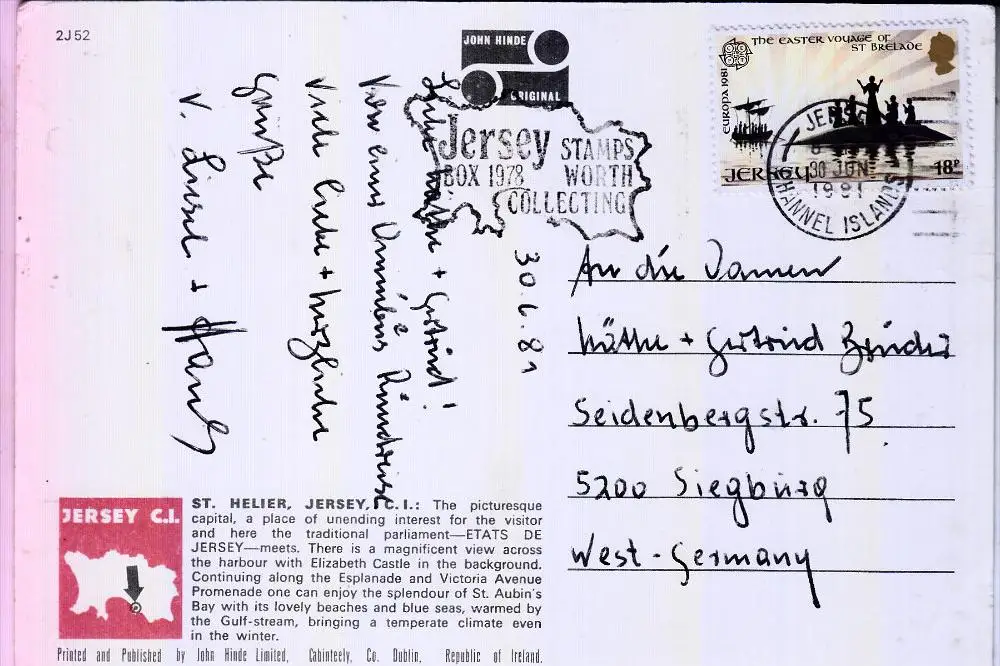 2J52
JOHN HINDE
ORIGINAL
Jersey STAMPS
BOX 1978 WORTH
COLLECTING
EUROPA 1981
THE EASTER VOYAGE OF
ST BRELADE
JERSEY 18P
JERSEY
30 JUN
1981
CHANNEL ISLANDS
30.6.81
+ Gertrud!
Von einer
Viele liebe + herzliche
Grüße
v. Liesel + Hans
An die Damen
Käthe + Gertrud
Seidenbergstr. 75
5200 Siegburg
West-Germany
JERSEY C.I.
ST. HELIER, JERSEY, C.I.: The picturesque
capital, a place of unending interest for the visitor
and here the traditional parliament—ETATS DE
JERSEY—meets. There is a magnificent view across
the harbour with Elizabeth Castle in the background.
Continuing along the Esplanade and Victoria Avenue
Promenade one can enjoy the splendour of St. Aubin's
Bay with its lovely beaches and blue seas, warmed by
the Gulf-stream, bringing a temperate climate even
in the winter.
Printed and Published by John Hinde Limited, Cabinteely, Co. Dublin, Republic of Ireland.